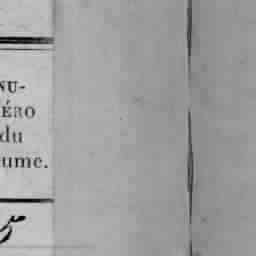 NU-
ÉRO
du
ume.
5